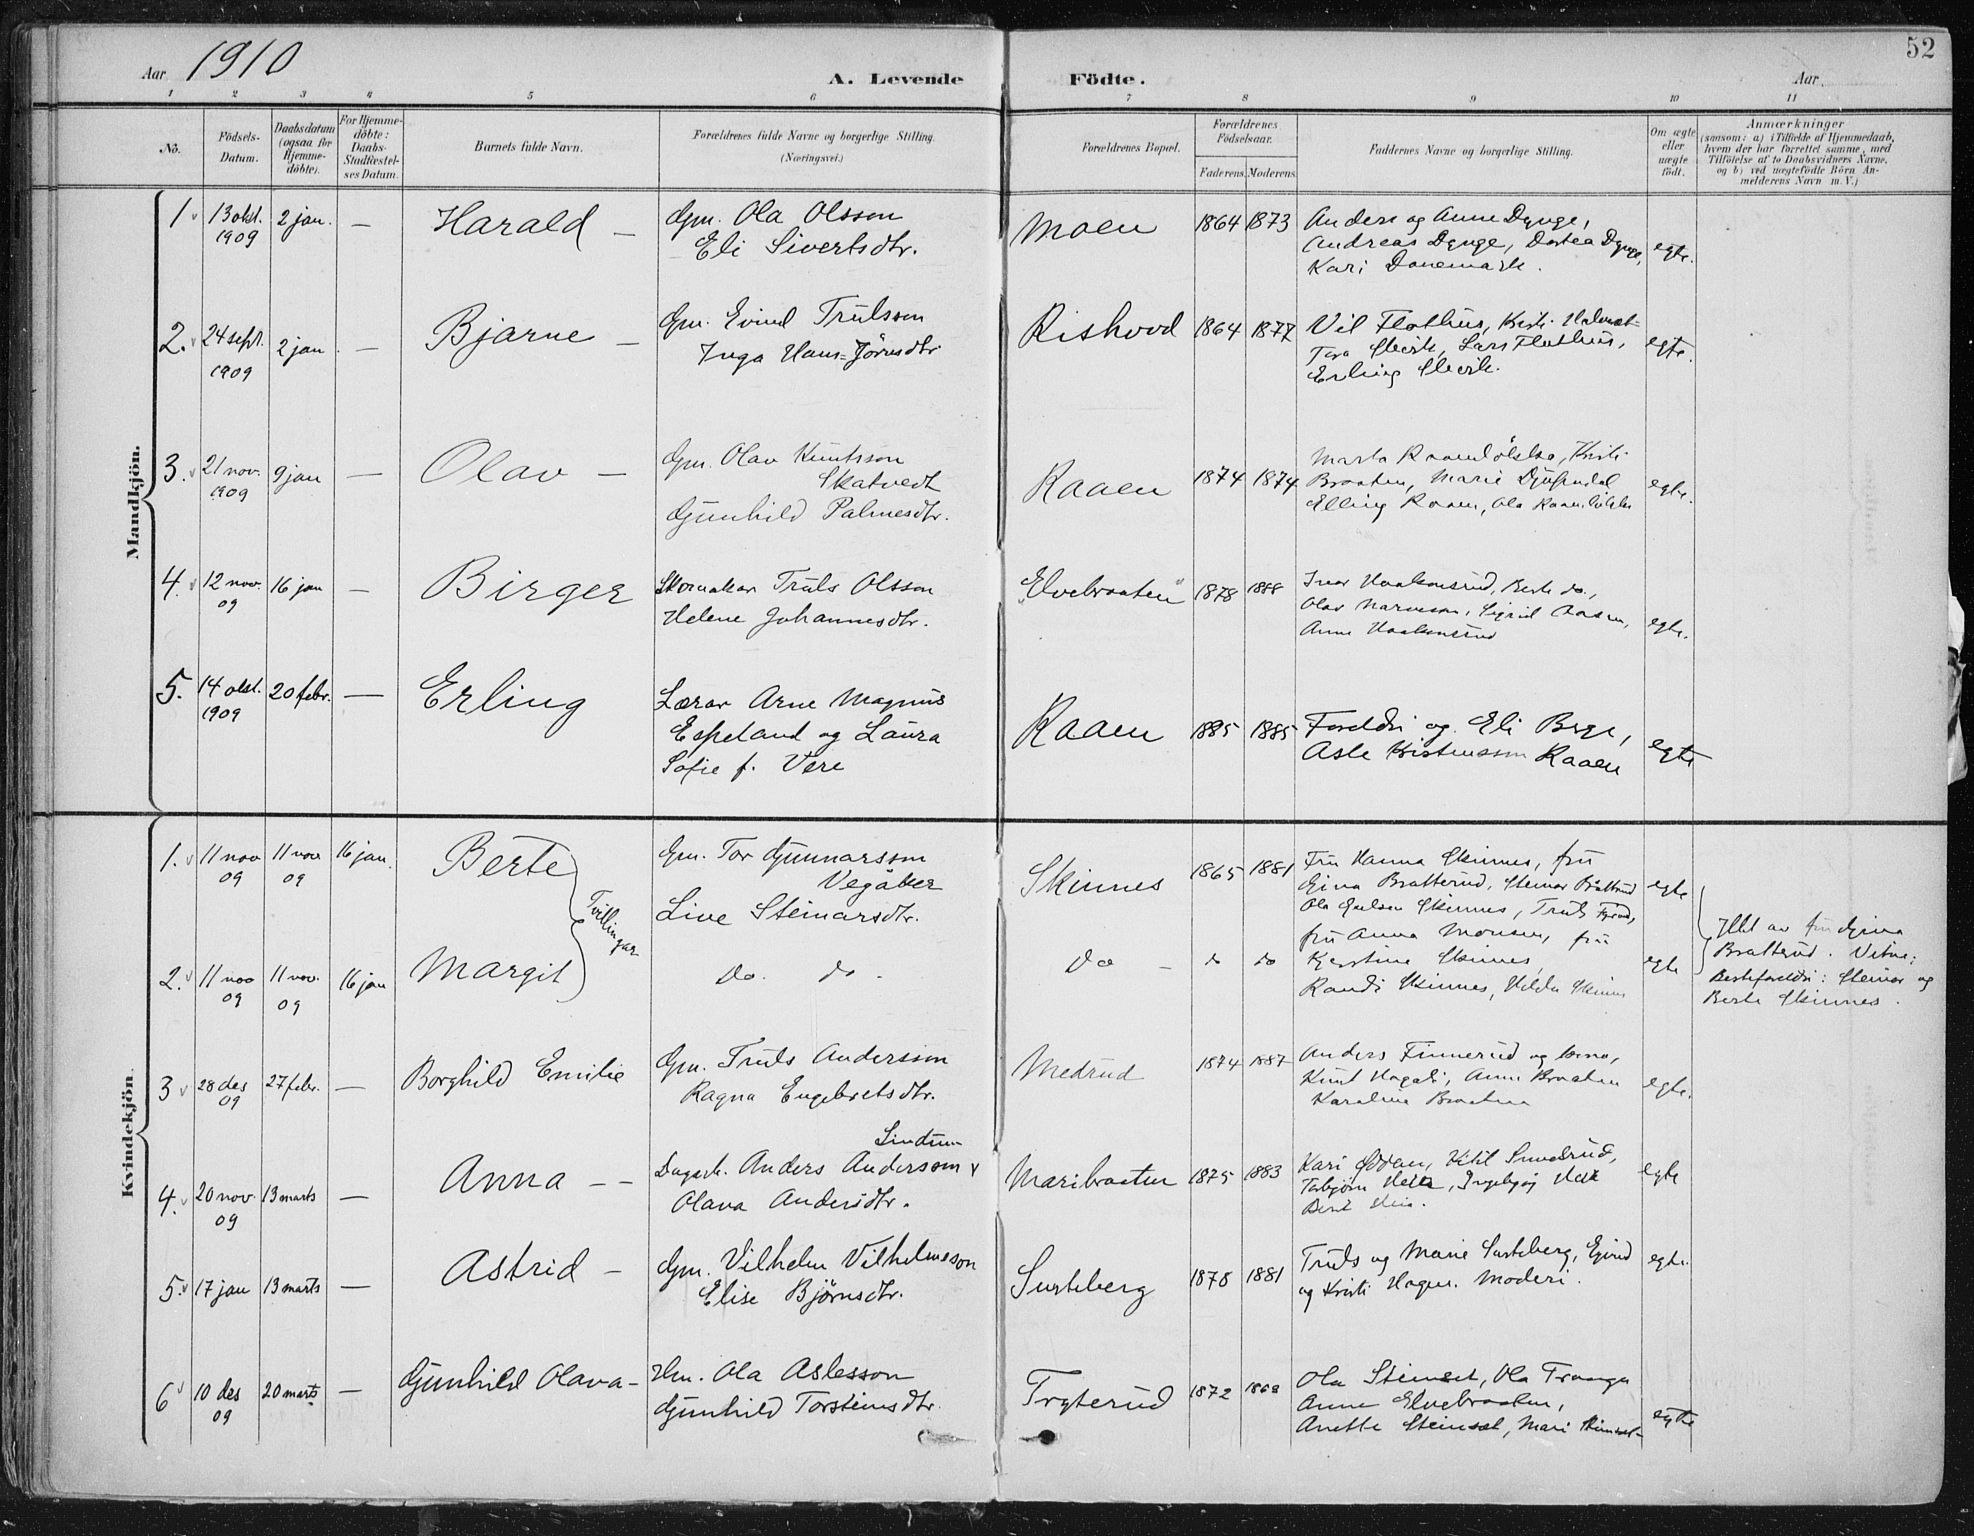 52
Aar 1910
A. Levende Födte.
Aar
1 2 3 4 5 6 7 8 9 10 11
No.
Födsels-
Datum.
Daabsdatum
(ogsaa for
Hjemme-
döbte).
For Hjemme-
döbte:
Daabs-
Stadfæstel-
ses Datum.
Barnets fulde Navn.
Forældrenes fulde Navne og borgerlige Stilling.
(Næringsvei.)
Forældrenes Bopæl.
Forældrenes
Födselsaar.
Faderens. Moderens.
Faddernes Navne og borgerlige Stilling.
Om ægte
eller
uægte
födt.
Anmærkninger
(saasom: a) i Tilfælde af Hjemmedaab,
hvem der har forrettet samme, med
Tilföielse af to Daabsvidners Navne,
og b) ved uægtefödte Börn An-
melderens Navn m. V.)
Mandkjön.
1 13 okt. 1909 2 jan. — Harald —
Gm. Ola Olsson
Eli Sivertsdtr.
Moen 1864 1873
Anders og Anne Dynge,
Andreas Dynge, Dortea Dynge,
Kari Danemark.
egte.
2. 24 sept. 1909 2 jan — Bjarne —
Gm. Eivind Trulsson
Inga Hans-Jörnsdtr
Rishovd 1864 1877
Vil Flathus,
Lars Flathus,
Erling
egte.
3. 21 nov. 1909 9 jan — Olav —
Gm. Olav Knutsson
Skatvedt
Gunhild Palmesdtr.
Raaen 1874 1874
Braaten, Marie Djupedal
Elling Raaen, Ola
egte.
4. 12 nov. 09 16 jan — Birger
Skomakar Truls Olsson
Helene Johannesdtr.
"Elvebraaten" 1878 1888
Ivar Haakonsrud, Berte do.,
Olav Narveson, Sigrid Aasen,
Anne Haakonsrud
egte.
5. 14 okt. 1909 20 febr. — Erling
Lærar Arne Magnus
Espeland og Laura
Sofie f. Vere
Raaen 1885 1885
Foreldri og Eli Berge,
Asle Kristensson Raaen
egte
Kvindekjön.
1. 11 nov 09 11 nov 09 16 jan. Berte
Tvillingar
Gm. Tor Gunnarsson
Vegåker
Live Steinarsdtr.
Skinnes 1865 1881
Fru Hanna Skinnes, fru
Gina Bratterud, Steinar Bratterud
Ola Skinnes, Truls
egte
2. 11 nov 09 11 nov. 09 16 jan Margit
Do. do.
Do — do do
fru Anna Monsen, fru
Kjerstine Skinnes
Randi Skinnes, Hilda Skinnes
egte
Hbt av fru Gina
Bratterud. Vitne:
Besteforeldri: Steinar og
Berte Skinnes.
3 28 des 09 27 febr. — Borghild Emilie
Gm. Truls Andersson
Ragna Engebretsdtr.
Medrud 1874 1887
Anders Finnerud og kona,
Knut Hagali, Anne Braaten
Karoline Braaten
egte.
4. 20 nov. 09 13 marts — Anna — —
Lindrum
Dagarb. Anders Andersson
Olava Andersdtr.
Maribraaten 1875 1883
Kari Oddan, Kitil
Torbjørn Ingebjørg
Berit
egte
5. 17 jan 13 marts — Astrid —
Gm. Vilhelm Vilhelmsson
Elise Björnsdtr.
Surteberg 1878 1881
Truls og Marie Surteberg, Eivind
og Kristi Hagen. Moderi.
egte.
6 10 des 09 20 marts — Gunhild Olava —
Hm. Ola Aslesson
Gunhild Torsteinsdtr.
Tryterud 1872 1868
Ola Steinset, Ola
Anne Elvebraaten,
Anette Steinset, Mari
egte